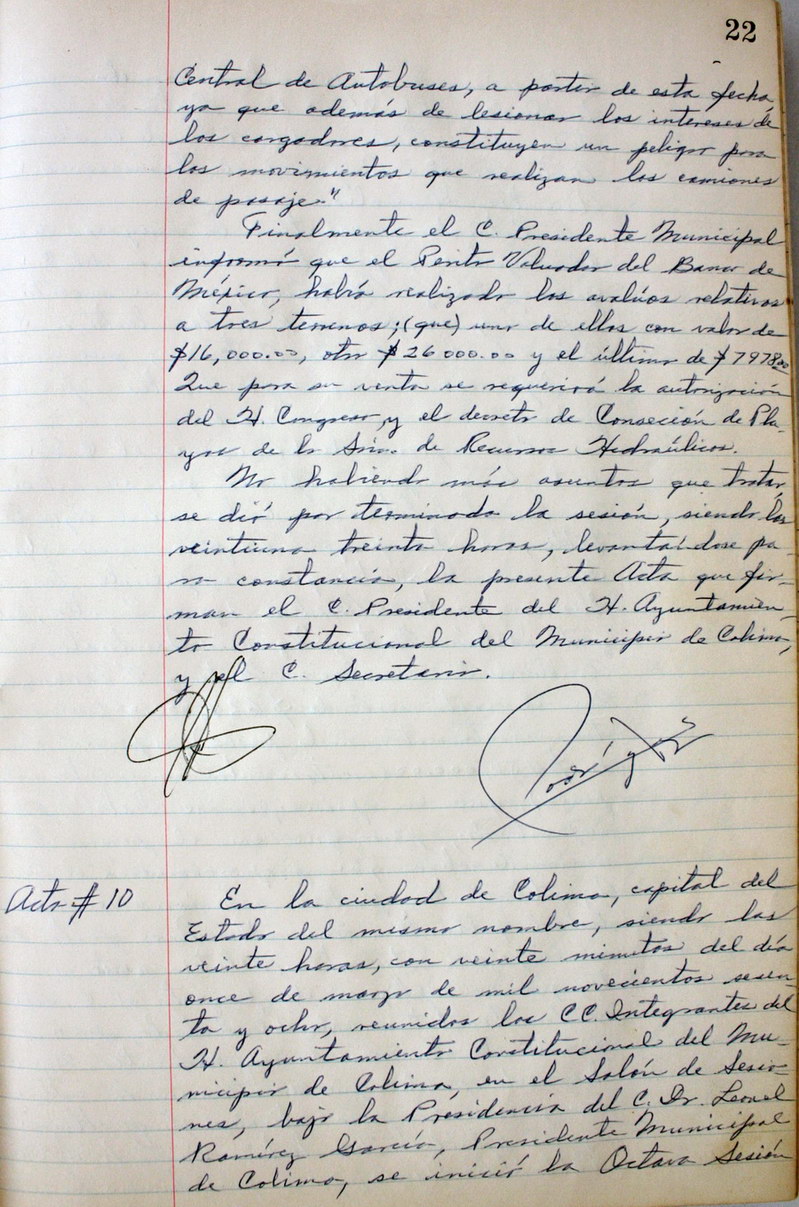 22
Central de Autobuses, a partir de esta fecha,
ya que además de lesionar los intereses de
los cargadores, constituyen un peligro para
los movimientos que realizan los camiones
de pasaje."
Finalmente el C. Presidente Municipal
informó que el Perito Valuador del Banco de
México, había realizado los avalúos relativos
a tres terrenos; (que) uno de ellos con valor de
$16,000.00, otro $26000.00 y el último de $7978.00
Que para su venta se requerirá la autorización
del H. Congreso, y el decreto de Conseción de Pla-
yas de la Sria. de Recursos Hidraúlicos.
No habiendo más asuntos que tratar,
se dió por terminada la sesión, siendo las
veintiuna treinta horas, levantándose pa-
ra constancia, la presente Acta que fir-
man el C. Presidente del H. Ayuntamien-
to Constitucional del Municipio de Colima,
y el C. Secretario.
Acta # 10
En la ciudad de Colima, capital del
Estado del mismo nombre, siendo las
veinte horas, con veinte minutos del día
once de marzo de mil novecientos sesen-
ta y ocho, reunidos los CC. Integrantes del
H. Ayuntamiento Constitucional del Mu-
nicipio de Colima, en el Salón de Sesio-
nes, bajo la Presidencia del C. Dr. Leonel
Ramírez García, Presidente Municipal
de Colima, se inició la Octava Sesión